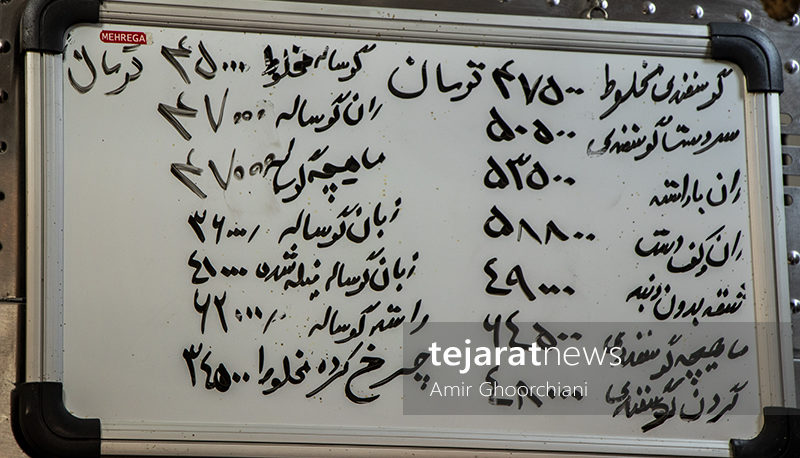 MEHREGA
گوسفندی مخلوط ۴۷۵۰۰ تومان
سردست گوسفندی ۵۰۵۰۰
ران با راسته ۵۳۵۰۰
ران و کف دست ۵۸۸۰۰
شقه بدون دنبه ۴۹۰۰۰
ماهیچه گوسفندی ۶۴۵۰۰
گردن گوسفندی ۴۸۰۰۰
گوساله مخلوط ۴۵۰۰۰ تومان
ران گوساله ۴۷۰۰۰
ماهیچه گوساله ۴۷۰۰۰
زبان گوساله ۳۶۰۰۰
زبان گوساله نیله شده ۴۱۰۰۰
راسته گوساله ۶۲۰۰۰
چرخ کرده مخلوط ۳۴۵۰۰
tejaratnews
Amir Ghoorchiani